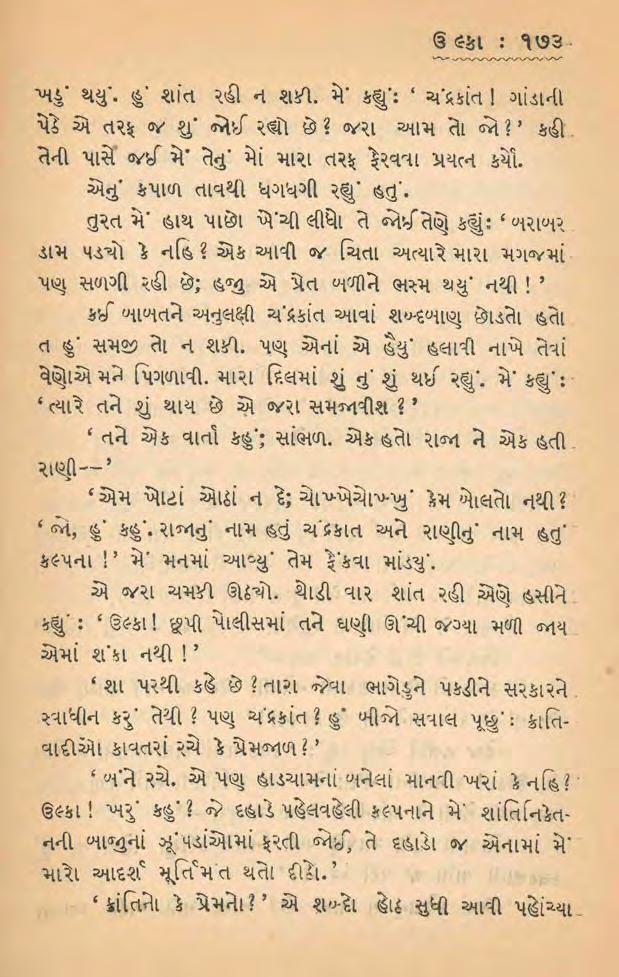 ઉલ્કા : ૧૭૩
ખડું થયું. હું શાંત રહી ન શકી. મેં કહ્યું: ‘ ચંદ્રકાંત ! ગાંડાની
પેઠે એ તરફ જ શું જોઈ રહ્યો છે ? જરા આમ તો જો ?’ કહી
તેની પાસે જઈ મેં તેનું મોં મારા તરફ ફેરવવા પ્રયત્ન કર્યો.
એનું કપાળ તાવથી ધગધગી રહ્યું હતું.
તુરત મેં હાથ પાછો ખેંચી લીધો તે જોઈ તેણે કહ્યું: ‘ બરાબર
ડામ પડ્યો કે નહિ ? એક આવી જ ચિતા અત્યારે મારા મગજમાં
પણ સળગી રહી છે; હજુ એ પ્રેત બળીને ભસ્મ થયું નથી ! ’
કઈ બાબતને અનુલક્ષી ચંદ્રકાંત આવાં શબ્દબાણ છોડતો હતો
ત હું સમજી તો ન શકી. પણ એનાં એ હૈયું હલાવી નાખે તેવાં
વેણોએ મને પિગળાવી. મારા દિલમાં શું નું શું થઈ રહ્યું. મેં કહ્યું :
‘ ત્યારે તને શું થાય છે એ જરા સમજાવીશ ? ’
‘ તને એક વાર્તા કહું; સાંભળ. એક હતો રાજા ને એક હતી
રાણી--’
‘ એમ ખોટાં ઓઠાં ન દે; ચોખ્ખેચોખ્ખું કેમ બોલતો નથી ?
‘ જો, હું કહું. રાજાનું નામ હતું ચંદ્રકાત અને રાણીનું નામ હતું
કલ્પના ! ’ મેં મનમાં આવ્યું તેમ ફેંકવા માંડ્યું.
એ જરા ચમકી ઊઠ્યો. થોડી વાર શાંત રહી એણે હસીને
કહ્યું : ‘ ઉલ્કા ! છૂપી પોલીસમાં તને ઘણી ઊંચી જગ્યા મળી જાય
એમાં શંકા નથી ! ’
‘ શા પરથી કહે છે ? તારા જેવા ભાગેડુને પકડીને સરકારને
સ્વાધીન કરું તેથી ? પણ ચંદ્રકાંત ? હું બીજો સવાલ પૂછું : ક્રાતિ-
વાદીઓ કાવતરાં રચે કે પ્રેમજાળ ? ’
‘ બંને રચે. એ પણ હાડચામનાં બનેલાં માનવી ખરાં કે નહિ ?
ઉલ્કા ! ખરું કહું ? જે દહાડે પહેલવહેલી કલ્પનાને મેં શાંતિનિકેત-
નની બાજુનાં ઝૂંપડાંઓમાં ફરતી જોઈ, તે દહાડો જ એનામાં મેં
મારો આદર્શ મૂર્તિમંત થતો દીઠો. ’
‘ ક્રાંતિનો કે પ્રેમનો ? ’ એ શબ્દો હોઠ સુધી આવી પહોંચ્યા